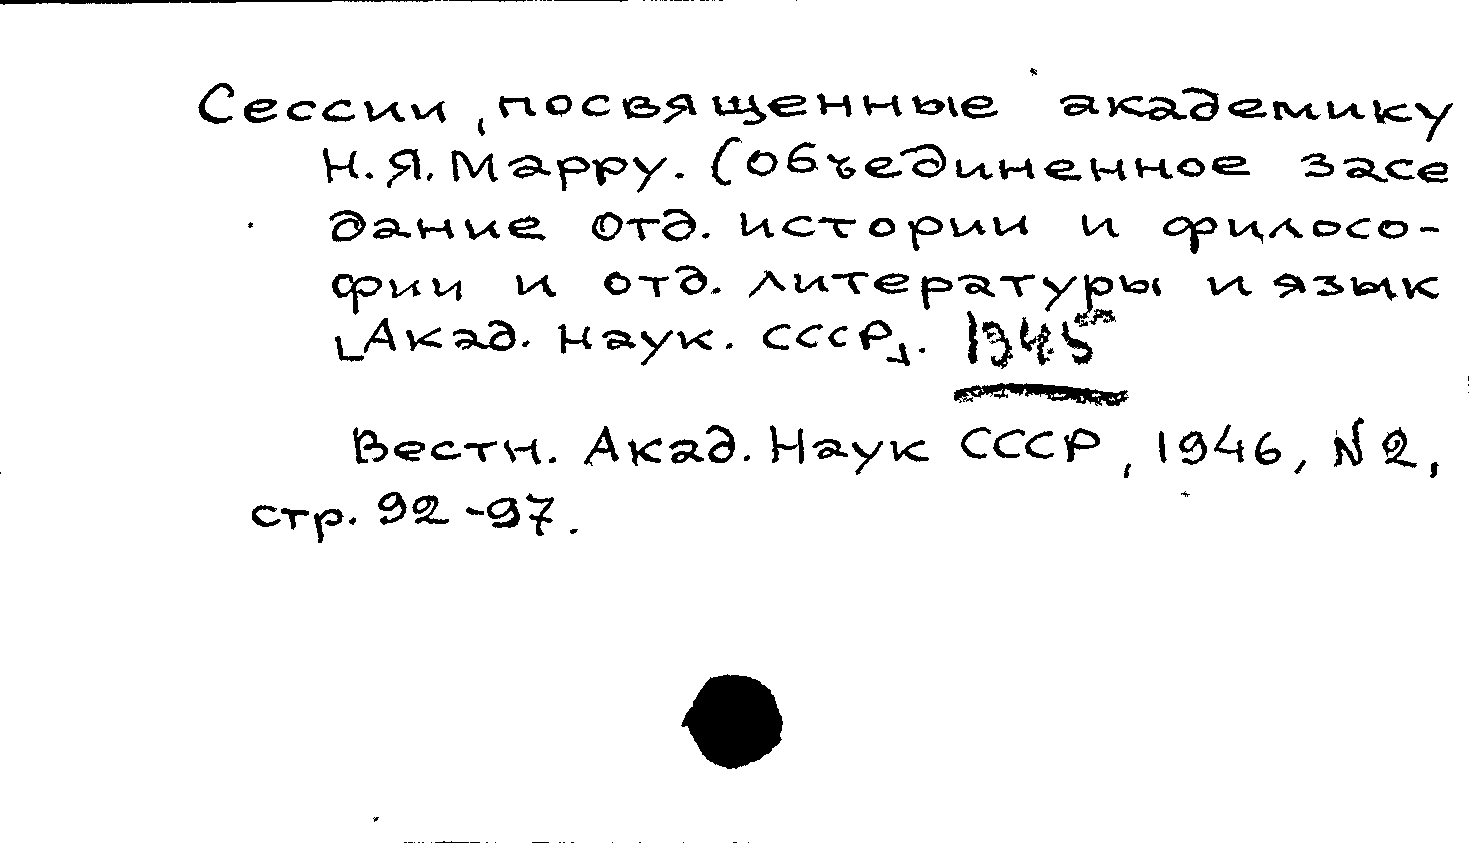 Сессии, посвященные академику
Н.Я. Марру. (Объединенное засе
дание Отд. истории и филосо-
фии и отд. литературы и язык
[Акад. Наук. СССР]. 1945
Вестн. Акад. Наук СССР, 1946, N 2,
стр. 92-97.